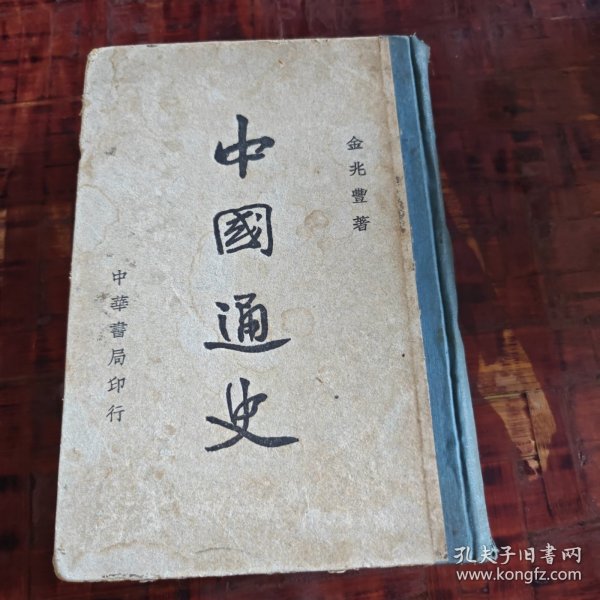 金兆豐著
中國通史
中華書局印行
孔夫子旧书网
www.kongfz.com